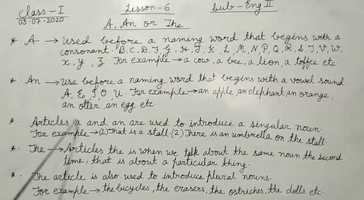 Class - I Lesson - 6 Sub - Eng II
03-07-2020
A, An or The
* A → used before a naming word that begins with a
consonant. B, C, D, F, G, H, J, K, L, M, N, P, Q, R, S, T, V, W,
X, Y, Z For example → a cow, a bee, a lion, a toffee etc
* An → use before a naming word that begins with a vowel sound
A, E, I, O, U. For example → an apple, an elephant, an orange
an otter, an egg etc
* Articles a and an are used to introduce a singular noun
For example → (1) That is a stall (2) There is an umbrella on the stall
* The → Articles the is when we talk about the same noun the second
time, that is about a particular thing.
* The article is also used to introduce plural nouns.
For example → the bicycles, the erasers, the ostriches, the dolls etc